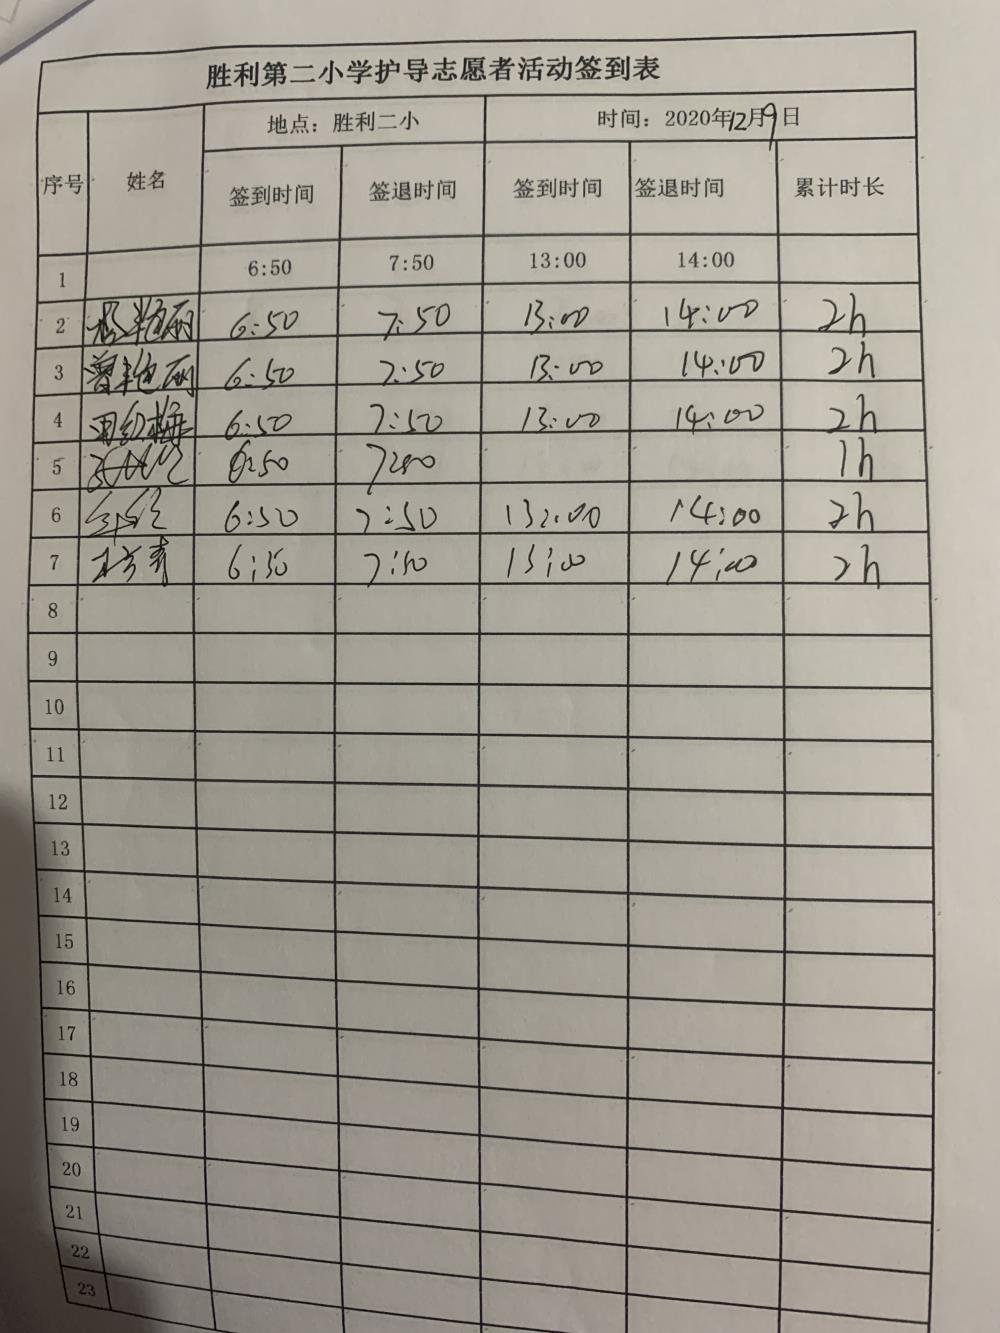 胜利第二小学护导志愿者活动签到表
序号 姓名 地点：胜利二小 时间：2020年12月9日
签到时间 签退时间 签到时间 签退时间 累计时长
1 6:50 7:50 13:00 14:00
2 杨艳丽 6:50 7:50 13:00 14:00 2h
3 曾艳丽 6:50 7:50 13:00 14:00 2h
4 周红梅 6:50 7:50 13:00 14:00 2h
5 6:50 1h
6 6:50 7:50 13:00 14:00 2h
7 6:50 7:50 13:00 14:00 2h
8
9
10
11
12
13
14
15
16
17
18
19
20
21
22
23